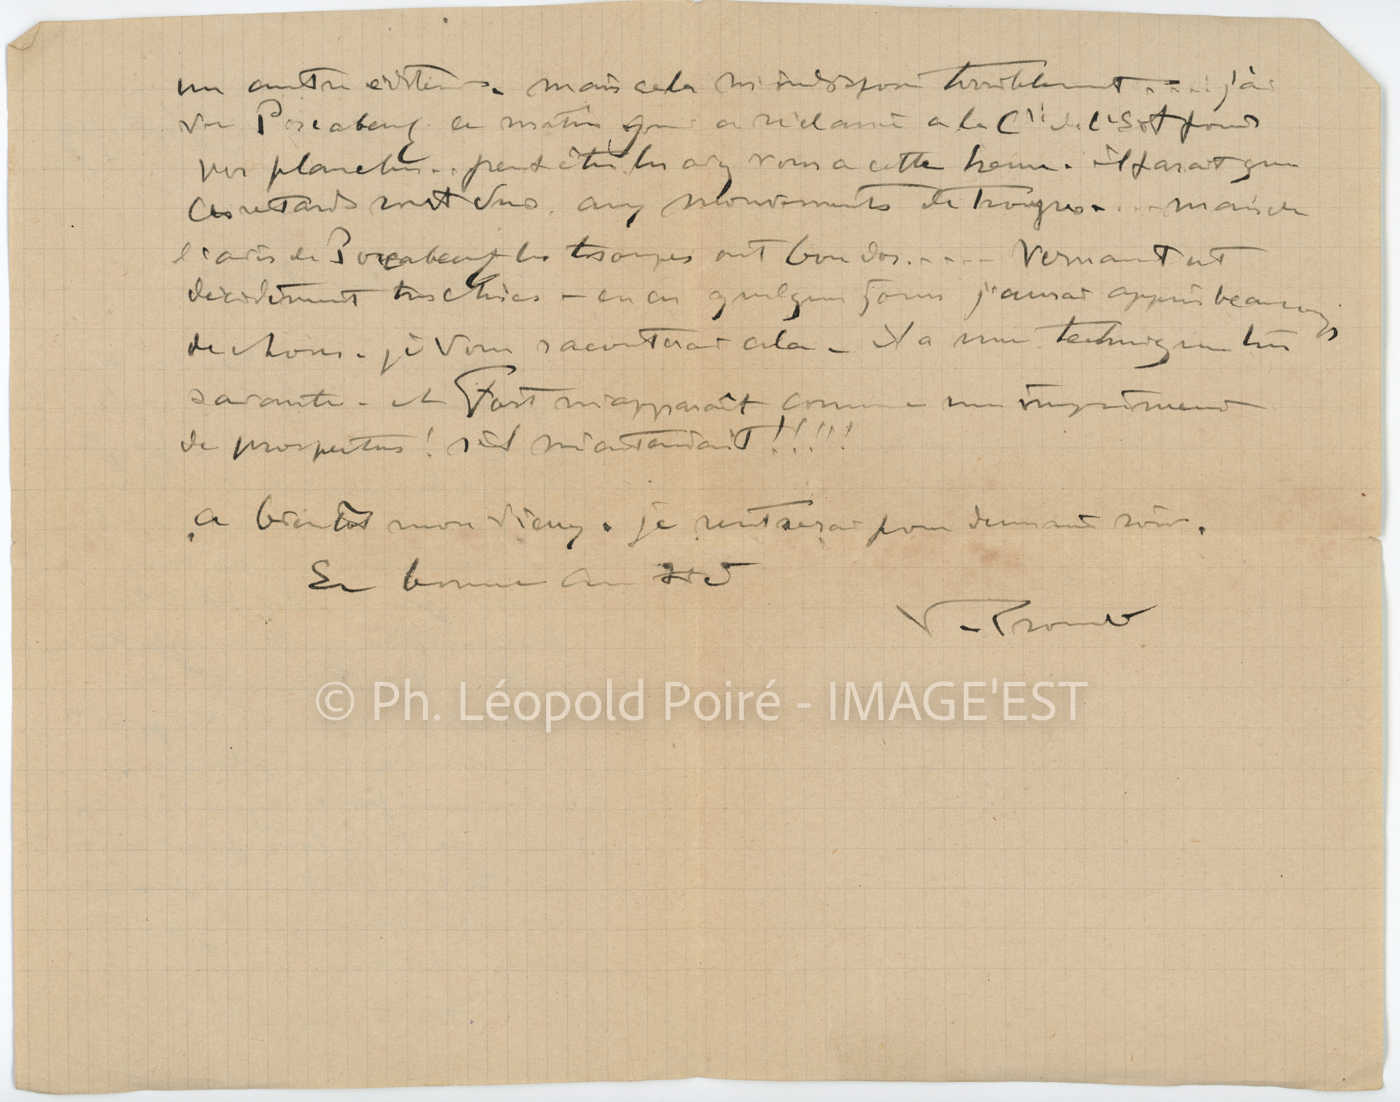 un autre existence. mais cela m'indispose terriblement ..... j'ai
vu Porcabeuf ce matin qui a réclamé a la Cie de l'Est pour
vos planches... peut être les avez vous a cette heure. il parait que
ces retards sont dus aux mouvements de troupes.... mais de
l'avis de Porcabeuf les troupes ont bon dos..... Vernant est
décidément très chic - en ces quelques jours j'aurai appris beaucoup
de choses. je vous raconterai cela - il a une technique très
savante - et Fort m'apparaît comme un imprimeur
de prospectus! s'il m'entendait!!!!!
a bientôt mon vieux. je rentrerai pour demain soir.
En bonne amitié
V. Prouvé
© Ph. Léopold Poiré - IMAGE'EST